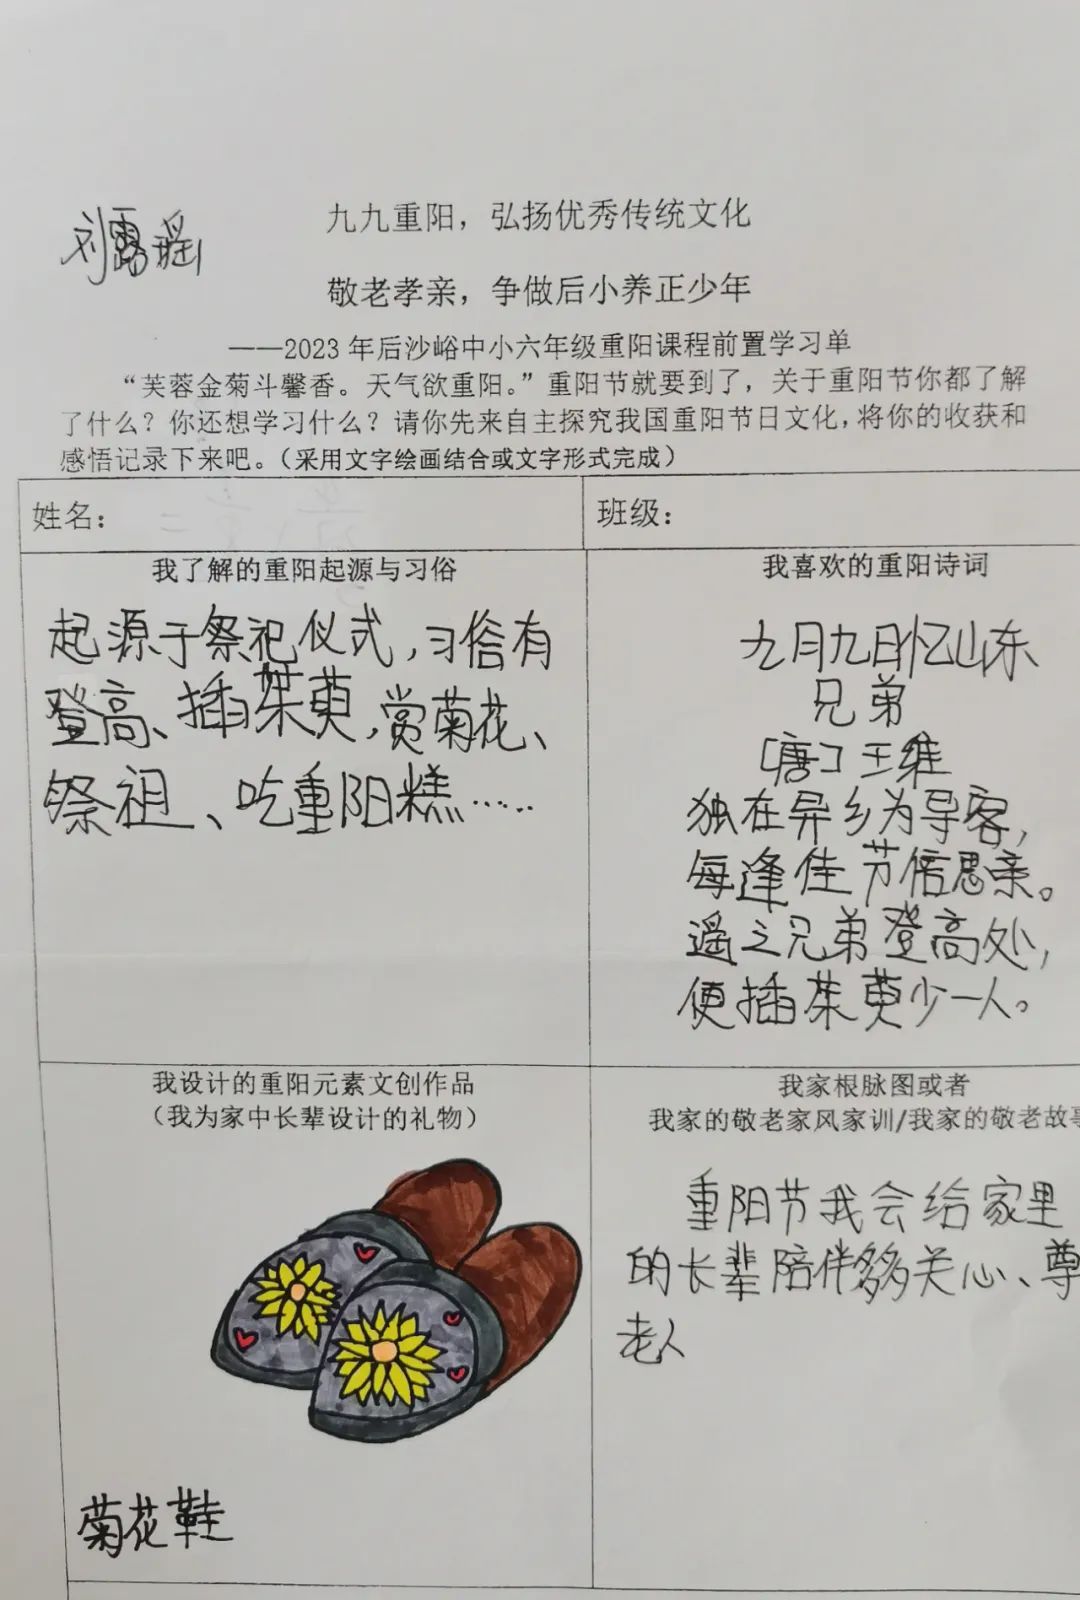 刘露瑶
九九重阳，弘扬优秀传统文化
敬老孝亲，争做后小养正少年
——2023 年后沙峪中小六年级重阳课程前置学习单
“芙蓉金菊斗馨香。天气欲重阳。”重阳节就要到了，关于重阳节你都了解
了什么？你还想学习什么？请你先来自主探究我国重阳节日文化，将你的收获和
感悟记录下来吧。（采用文字绘画结合或文字形式完成）
姓名：
班级：
我了解的重阳起源与习俗
起源于祭祀仪式，习俗有
登高、插茱萸，赏菊花、
祭祖、吃重阳糕……
我喜欢的重阳诗词
九月九日忆山东
兄弟
[唐]王维
独在异乡为导客，
每逢佳节倍思亲。
遥之兄弟登高处，
便插茱萸少一人。
我设计的重阳元素文创作品
（我为家中长辈设计的礼物）
菊花鞋
我家根脉图或者
我家的敬老家风家训/我家的敬老故事
重阳节我会给家里
的长辈陪伴多多关心、尊
老人